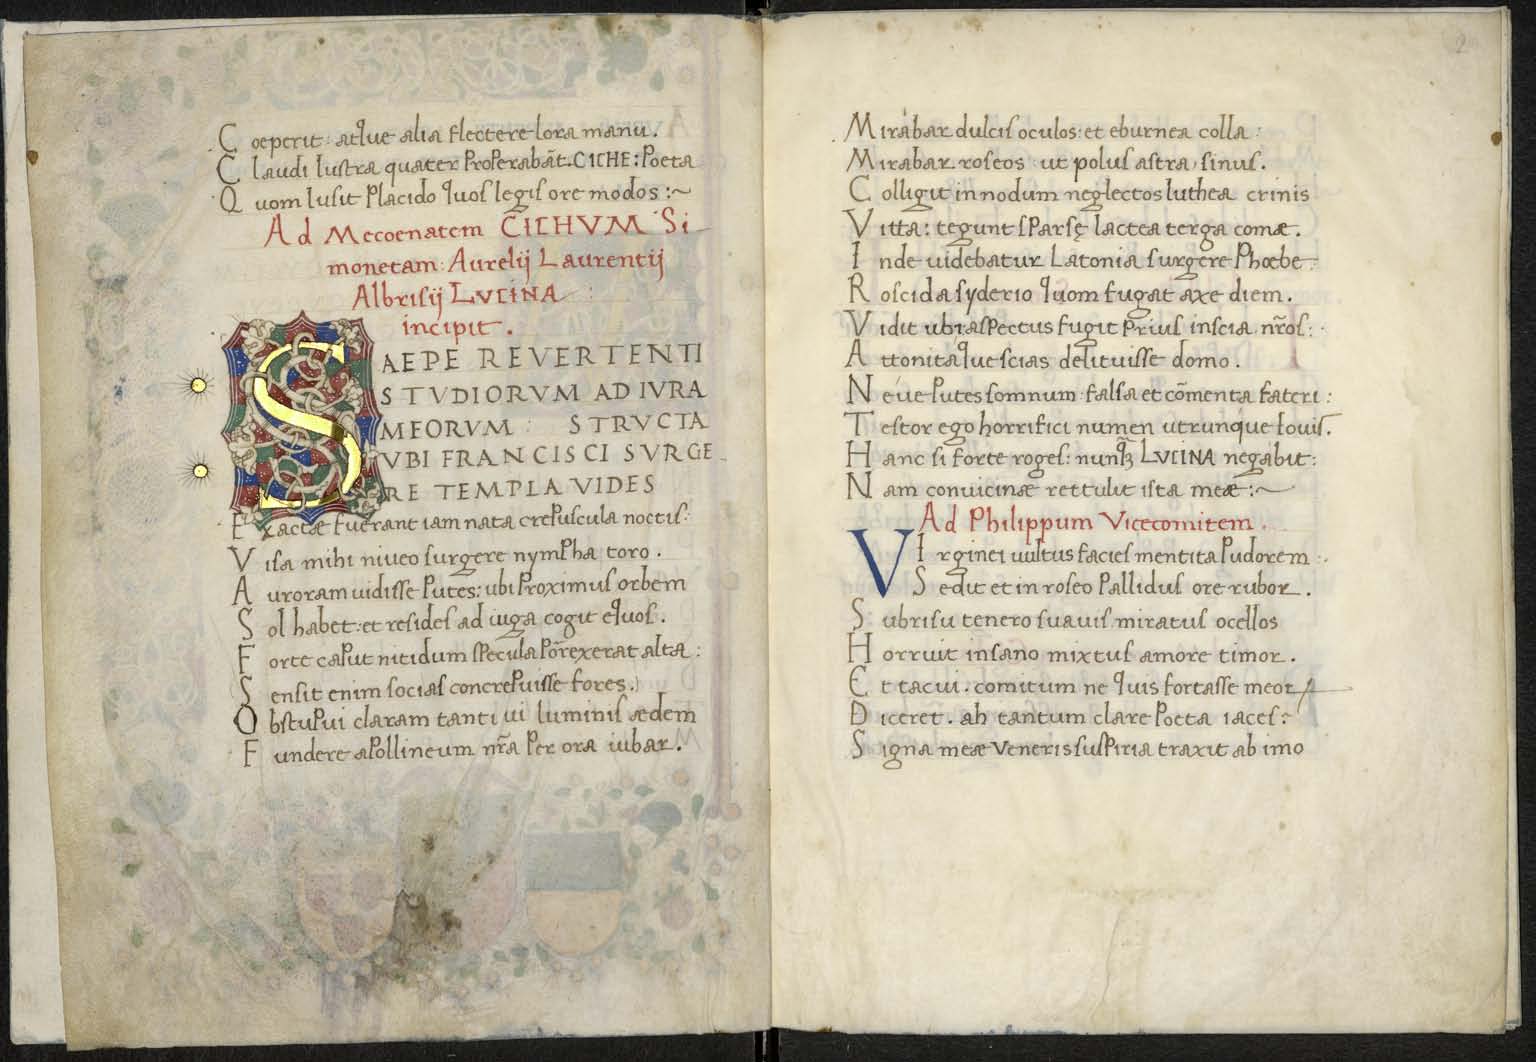 Coeperit: atque alia flectere lora manu.
Claudi lustra quater properabãt. CICHE: Poeta
Quom lusit placido quos legis ore modos:~
Ad Mecoenatem CICHVM Si
monetam: Aurelij Laurentij
Albrisij LVCINA
incipit.
SAEPE REVERTENTI
STVDIORVM AD IVRA
MEORVM: STRVCTA
VBI FRANCISCI SVRGE
RE TEMPLA VIDES
Exactæ fuerant iam nata crepuscula noctis:
Visa mihi niueo surgere nympha toro.
Auroram uidisse putes: ubi proximus orbem
Sol habet: et resides ad iuga cogit equos.
Forte caput nitidum specula porrexerat alta:
Sensit enim socias concrepuisse fores.
Obstupui claram tanti ui luminis ædem
Fundere apollineum nr̃a per ora iubar.
2
Mirabar dulcis oculos: et eburnea colla:
Mirabar roseos ut polus astra, sinus.
Colligit in nodum neglectos luthea crinis
Vitta: tegunt sparsę lactea terga comæ.
Inde uidebatur Latonia surgere Phœbe:
Roscida syderio quom fugat axe diem.
Vidit ubi aspectus fugit prius inscia nr̃os:
Attonitaque scias delituisse domo.
Neue putes somnum: falsa et cõmenta fateri:
Testor ego horrifici numen utrunque Iouis.
Hanc si forte roges: nunq̃ LVCINA negabit:
Nam conuicinæ rettulit ista meæ:~
Ad Philippum Vicecomitem.
VIrginei uultus facies mentita pudorem
Sedit et in roseo pallidus ore rubor.
Subrisu tenero suauis miratus ocellos
Horruit insano mixtus amore timor.
Et tacui. comitum ne quis fortasse meoꝝ
Diceret. ah tantum clare Poeta iaces:
Signa meæ Veneris suspiria traxit ab imo